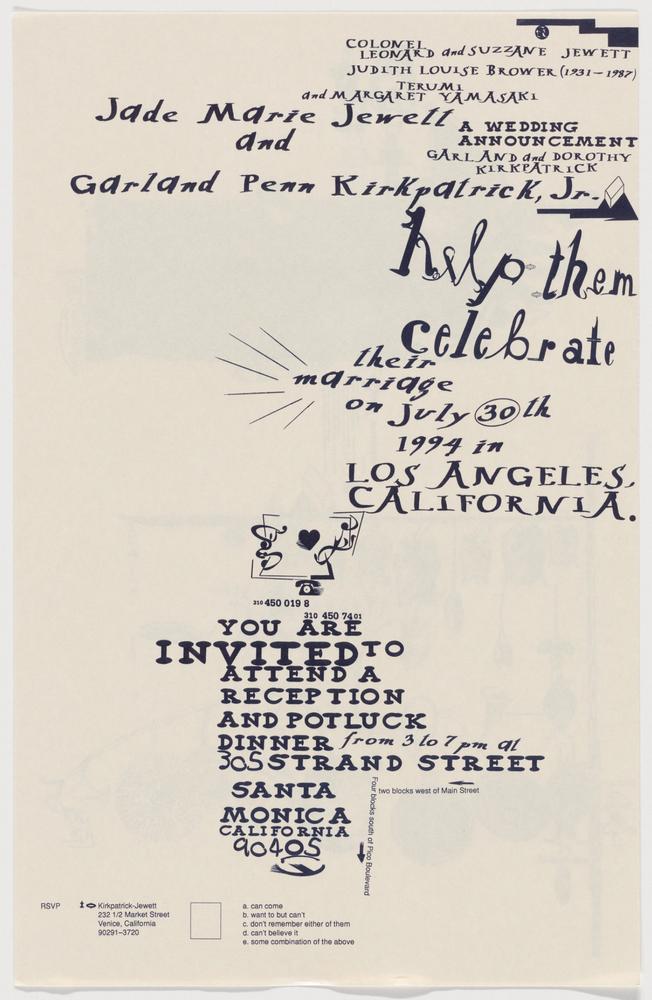 COLONEL
LEONARD and SUZZANE JEWETT
JUDITH LOUISE BROWER (1931–1987)
TERUMI
and MARGARET YAMASAKI
Jade Marie Jewett
and
A WEDDING
ANNOUNCEMENT
GARLAND and DOROTHY
KIRKPATRICK
Garland Penn Kirkpatrick, Jr.
help them
celebrate
their
marriage
on July 30th
1994 in
LOS ANGELES,
CALIFORNIA.
310 450 019 8
310 450 7401
YOU ARE
INVITED TO
ATTEND A
RECEPTION
AND POTLUCK
DINNER from 3 to 7 pm at
305 STRAND STREET
SANTA
MONICA
CALIFORNIA
90405
two blocks west of Main Street
Four blocks south of Pico Boulevard
RSVP
Kirkpatrick-Jewett
232 1/2 Market Street
Venice, California
90291–3720
a. can come
b. want to but can't
c. don't remember either of them
d. can't believe it
e. some combination of the above